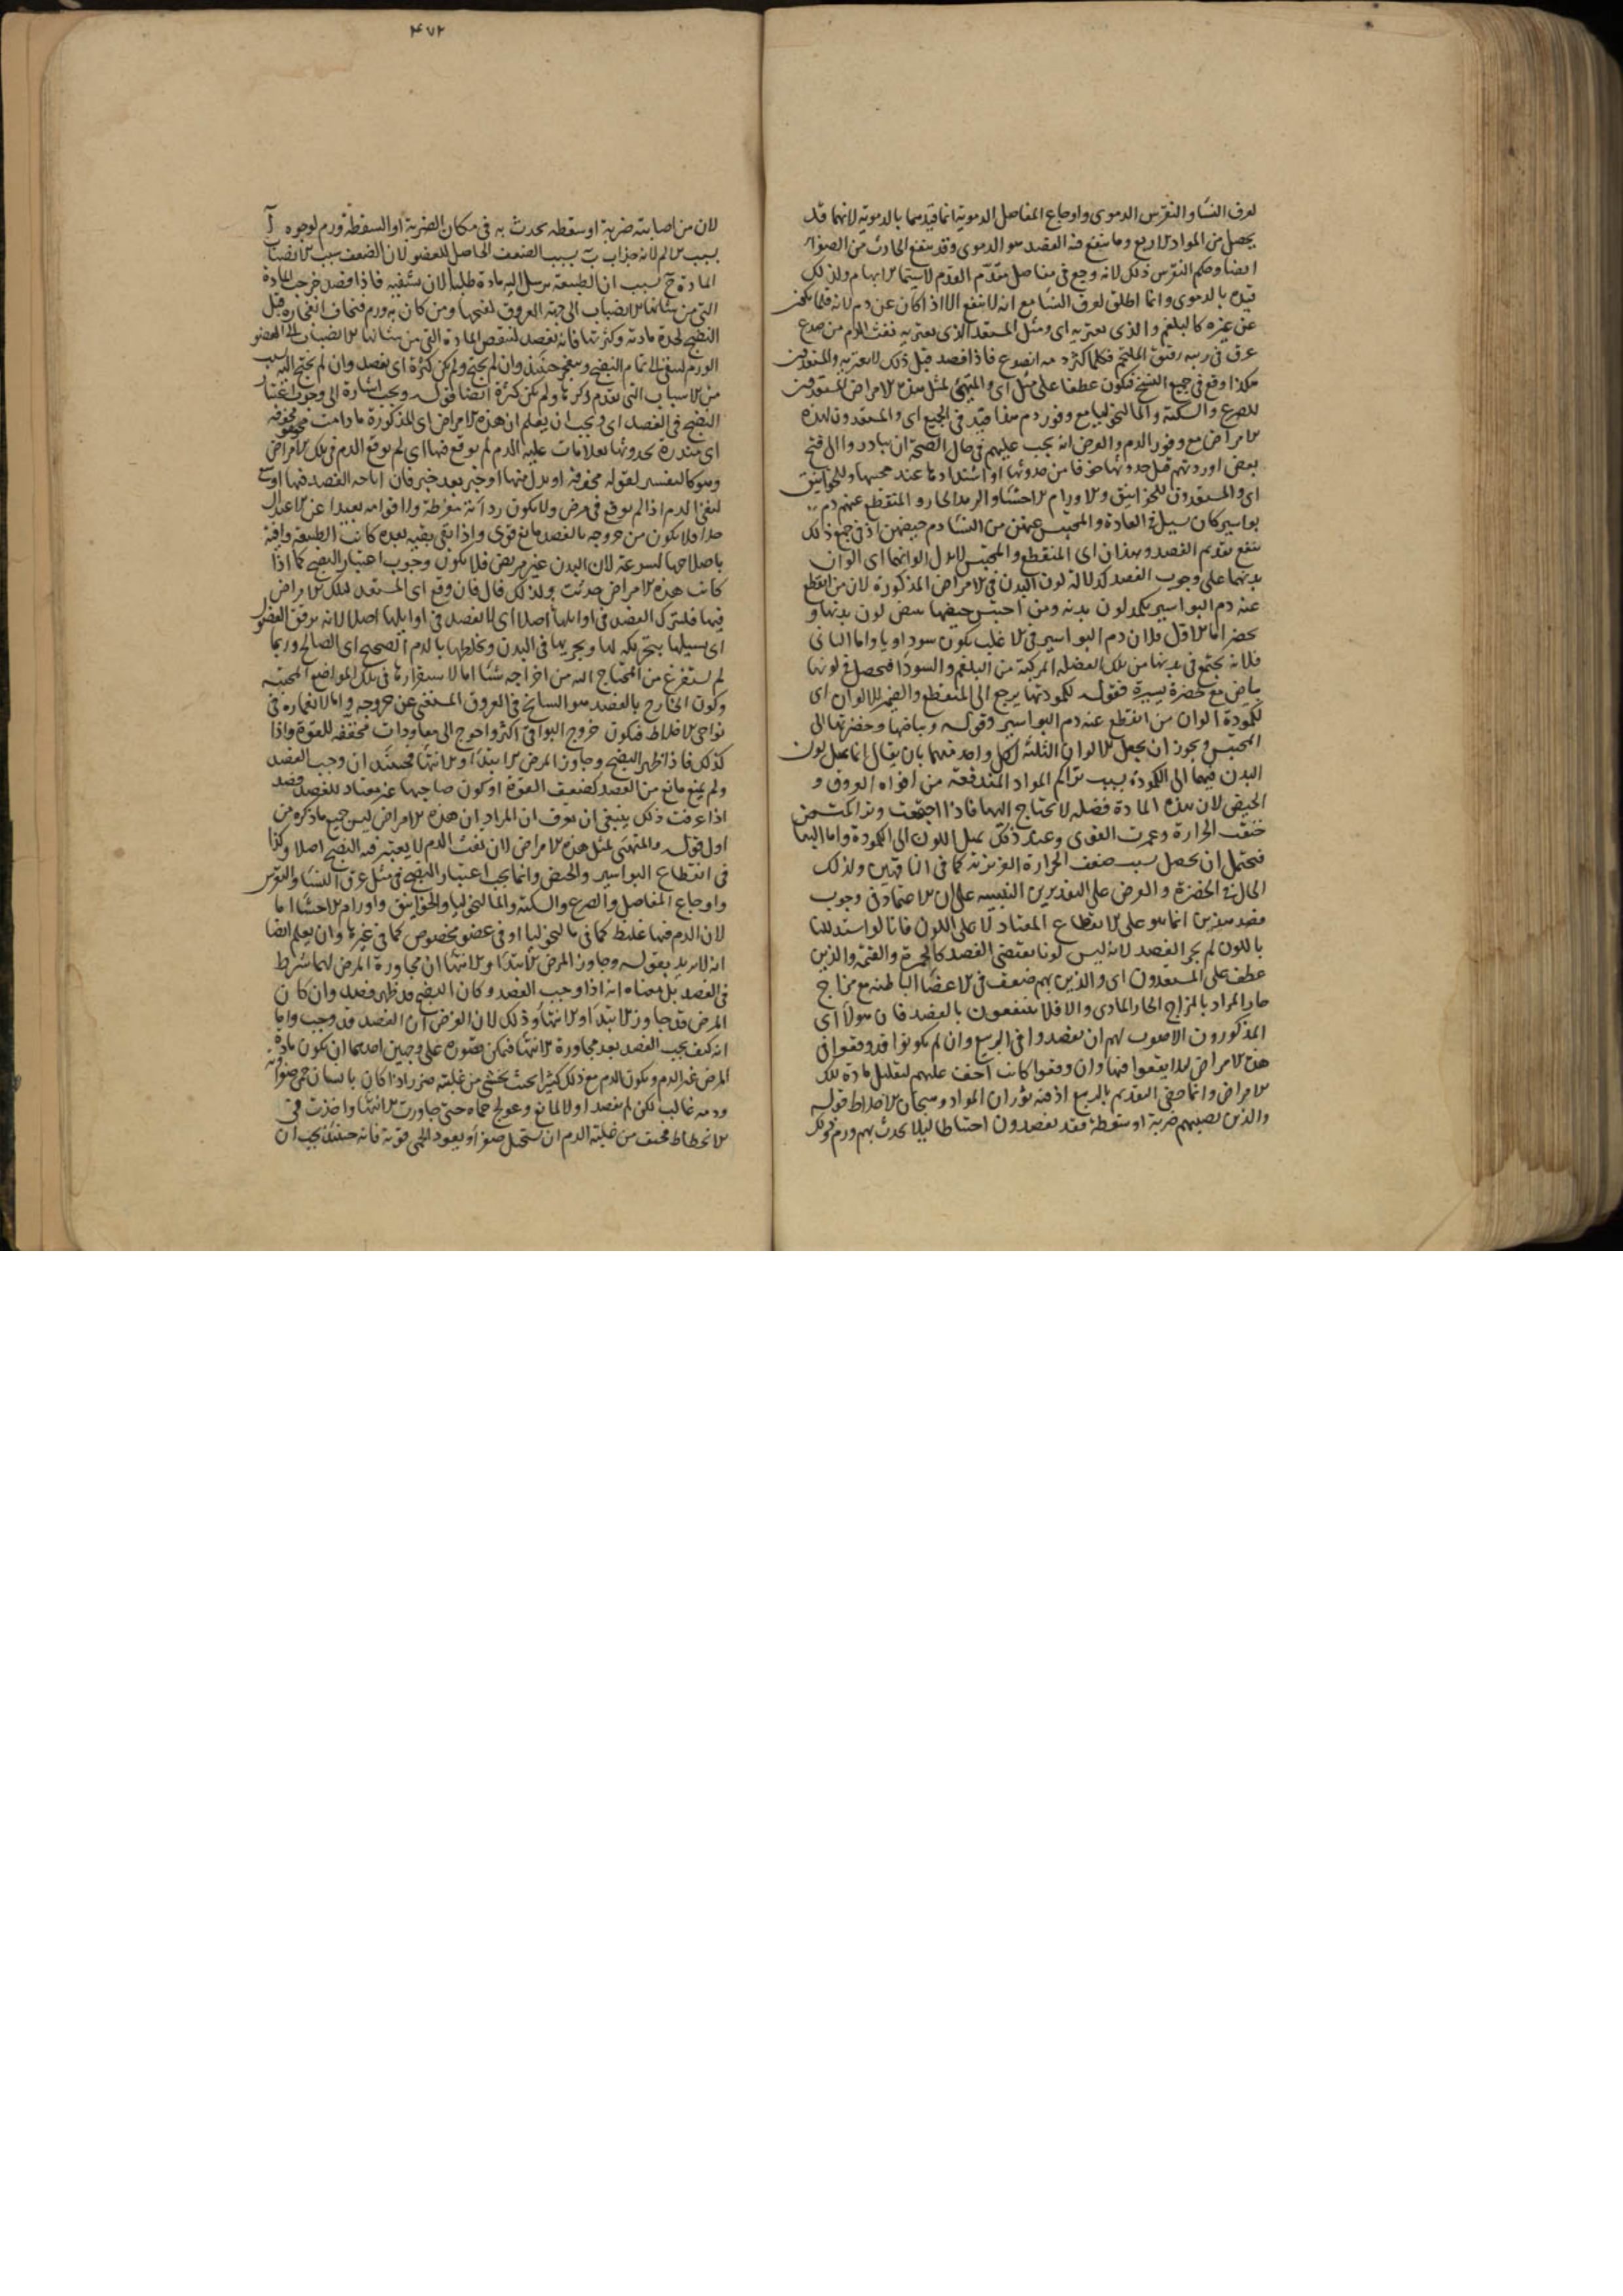 لعرق النسا والنقرس الدموى واوجاع المفاصل الدموية انما قيدهما بالدموية لانهما قد
يحصل من المواد الاربع وما ينفع فيه الفصد هو الدموى وقد ينفع الحادث من الصفراء
ايضا وحكم النقرس ذلك لانه وجع فى مفاصل مقدّم القدم لاسيما الابهام ولذلك
قيده بالدموى وانما اطلق لعرق النسا مع انه لا ينفع الا اذا كان عن دم لانه قلما يكون
عن غيره كالبلغم والذى يعتريه اى ومثل المستعد الذى يعتريه نفث الدم من صدع
عرق فى ريته رقيق الملتحم فكلما كثر دمه انصدع فاذا فصد قبل ذلك لا يعتريه والمستعدين
هكذا وقع فى جميع النسخ فيكون عطفا على مثل اى والمتهيئ لمثل هذه الامراض المستعدين
للصرع والسكتة والمالنخوليا مع وفور دم هذا قيد فى الجميع اى والمستعدون لهذه
الامراض مع وفور الدم والغرض انه يجب عليهم فى حال الصحة ان يبادروا الى فتح
بعض اوردتهم قبل حدوثها خوفا من حدوثها او اشتدادها عند مجيئها وللخوانيق
اى والمستعدون للخوانيق والاورام الاحشا والرمد الحار والمنقطع عنهم دم
بواسير كان يسيل فى العادة والمحتبس عنهن من النسا دم حيضهن اذ فى جميع ذلك
ينفع تقديم الفصد وهذان اى المنقطع والمحتبس لا يدل الوانهما اى الوان
بدنهما على وجوب الفصد كدلالة لون البدن فى الامراض المذكورة لان من انقطع
عنه دم البواسير يكمد لون بدنه ومن احتبس حيضها يبيض لون بدنها و
يخضر اما الاول فلان دم البواسير فى الاغلب يكون سوداويا واما الثانى
فلانه يجتمع فى بدنها من تلك الفضله المركبة من البلغم والسودا فيحصل فى لونها
بياض مع خضرة يسيرة فقوله لكمودتها يرجع الى المنقطع والضمير للالوان اى
لكمودة الوان من انقطع عنه دم البواسير وقوله وبياضها وخضرتها الى
المحتبس ويجوز ان يجعل الالوان الثلثة لكل واحد منهما بان يقال انما يميل لون
البدن فيهما الى الكمودة بسبب تراكم المواد المندفعة من افواه العروق و
الحيض لان هذه المادة فضله لا يحتاج اليها فاذا اجتمعت وتراكمت
خنقت الحرارة وغمرت القوى وعند ذلك يميل اللون الى الكمودة واما البياض
فيحتمل ان يحصل بسبب ضعف الحرارة الغريزية كما فى الناقهين ولذلك
الحال فى الخضرة والغرض على التقديرين التنبيه على ان الاعتماد فى وجوب
فصد هذين انما هو على الانقطاع المعتاد لا على اللون فانا لو استدللنا
باللون لم يجز الفصد لانه ليس لونا يقتضى الفصد كالحمرة والقتمة والذين
عطف على المستعدون اى والذين بهم ضعف فى الاعضا الباطنه مع مزاج
حار المراد بالمزاج الحار المادى والا فلا ينتفعون بالفصد فان هولا اى
المذكورون الاصوب لهم ان يفصدوا فى الربيع وان لم يكونوا قد وقعوا فى
هذه الامراض لئلا يقعوا فيها وان وقعوا كانت اخف عليهم لتقليل مادة تلك
الامراض وانما خص التقديم بالربيع اذ فيه ثوران المواد وهيجان الاخلاط قوله
والذين تصيبهم ضربة او سقطة فقد يفصدون احتياطا ليلا يحدث بهم ورم وذلك
لان من اصابته ضربة او سقطه يحدث به فى مكان الضربة او السقطة ورم لوجوه آ
بسبب الالم لانه جذاب ب بسبب الضعف الحاصل للعضو لان الضعف سبب الانصباب
المادة ج بسبب ان الطبيعة ترسل اليه مادة طلبا لان تشفيه فاذا فصد خرجت المادة
التى من شانها الانصباب الى جهة العروق لفتحها ومن كان به ورم فيخاف انفجاره قبل
النضج لحدة مادته وكثرتها فانه يفصد لتنقص المادة التى من شانها الانصباب الى العضو
الورم لتبقى الى تمام النضج وينفجر حينئذ وان لم يحتج ولم يكن كثرة اى يفصد وان لم يحتج اليه بسبب
من الاسباب التى تقدم ذكرها ولم يكن كثرة ايضا قوله ويجب اشارة الى وجوب اعتبار
النضج فى الفصد اى ويجب ان يعلم ان هذه الامراض اى المذكورة ما دامت مخوفه
اى منذرة بحدوثها بعلامات غلبة الدم لم توقع فيها اى لم يوقع الدم فى تلك الامراض
وهو كالتفسير لقوله مخوفة او بدل منها او خبر بعد خبر فان اباحه الفصد فيها اوسع
ليفنى الدم اذا لم يوقع فى مرض ولا يكون رداءته مفرطة ولا قوامه بعيدا عن الاعتدال
جدا فلا يكون من خروجه بالفصد مانع قوى واذا بقى بقيه بعده كانت الطبيعه وافية
باصلاحها بسرعة لان البدن غير مريض فلا يكون وجوب اعتبار النضج كما اذا
كانت هذه الامراض حدثت ولذلك قال فان وقع اى المستعد لتلك الامراض
فيها فليترك الفصد فى اوايلها اصلا اى لا يفصد فى اوايلها اصلا لانه يرقق الفضول
اى يسيلها بتحريكه لها ويجريها فى البدن ويخلطها بالدم الصحيح اى الصالح وربما
لم يستفرغ من المحتاج اليه من اخراجه شيئا اما لاستقرارها فى تلك المواضع المحتبسه
وكون الخارج بالفصد هو السانح فى العروق المستغنى عن خروجه واما لانغماره فى
نواحى الاخلاط فيكون خروج البواقى اكثر واحوج الى معاودات مجحفة للقوة واذا
كذلك فاذا ظهر النضج وجاوز المرض الابتدا والانتها فحينئذ ان وجب الفصد
ولم يمنع مانع من الفصد كضعف القوة او كون صاحبها غير معتاد للفصد فصد
اذا عرفت ذلك ينبغى ان تعرف ان المراد ان هذه الامراض ليس جميع ما ذكره من
اول قوله والمتهيئ لمثل هذه الامراض لان نفث الدم لا يعتبر فيه النضج اصلا وكذا
فى انقطاع البواسير والحيض وانما يجب اعتبار النضج فى مثل عرق النسا والنقرس
واوجاع المفاصل والصرع والسكتة والمالنخوليا والخوانيق واورام الاحشا اما
لان الدم فيها غليظ كما فى مالنخوليا او فى عضو مخصوص كما فى غيرها وان يعلم ايضا
انه لا يريد بقوله وجاوز المرض الابتدا والانتها ان مجاوزة المرض لهما شرط
فى الفصد بل معناه انه اذا وجب الفصد وكان النضج قد ظهر فصد وان كان
المرض قد جاوز الابتدا والانتها وذلك لان الغرض ان الفصد قد وجب واما
انه كيف يجب الفصد بعد مجاوزة الانتها فيمكن تصوره على وجهين احدهما ان يكون مادة
المرض غير الدم ويكون الدم مع ذلك كثيرا بحيث يخشى من غلبته ضرر اذا كان بانسان حمى صفراوية
ودمه غالب لكن لم يفصد اولا لمانع وعولج حماه حتى جاوزت الانتها واخذت فى
الانحطاط فخيف من غلبة الدم ان يستحيل صفراء ويعود الحمى قوية فانه حينئذ يجب ان